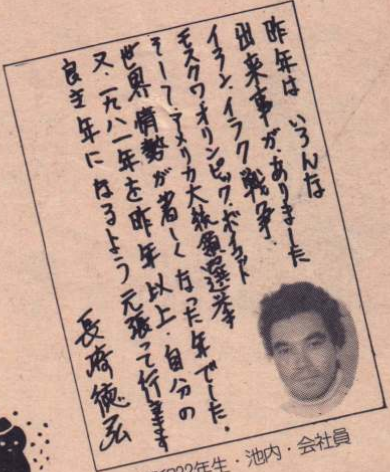 昨年は いろんな
出来事が、ありました
イラン、イラク戦争、
モスクワ、オリンピック、ボイコット
そして、アメリカ大統領選挙
世界情勢が著しくなった年でした。
又、一九八一年を昨年以上、自分の
良き年になるよう元張って行きます
長崎徳弘
22年生・池内・会社員